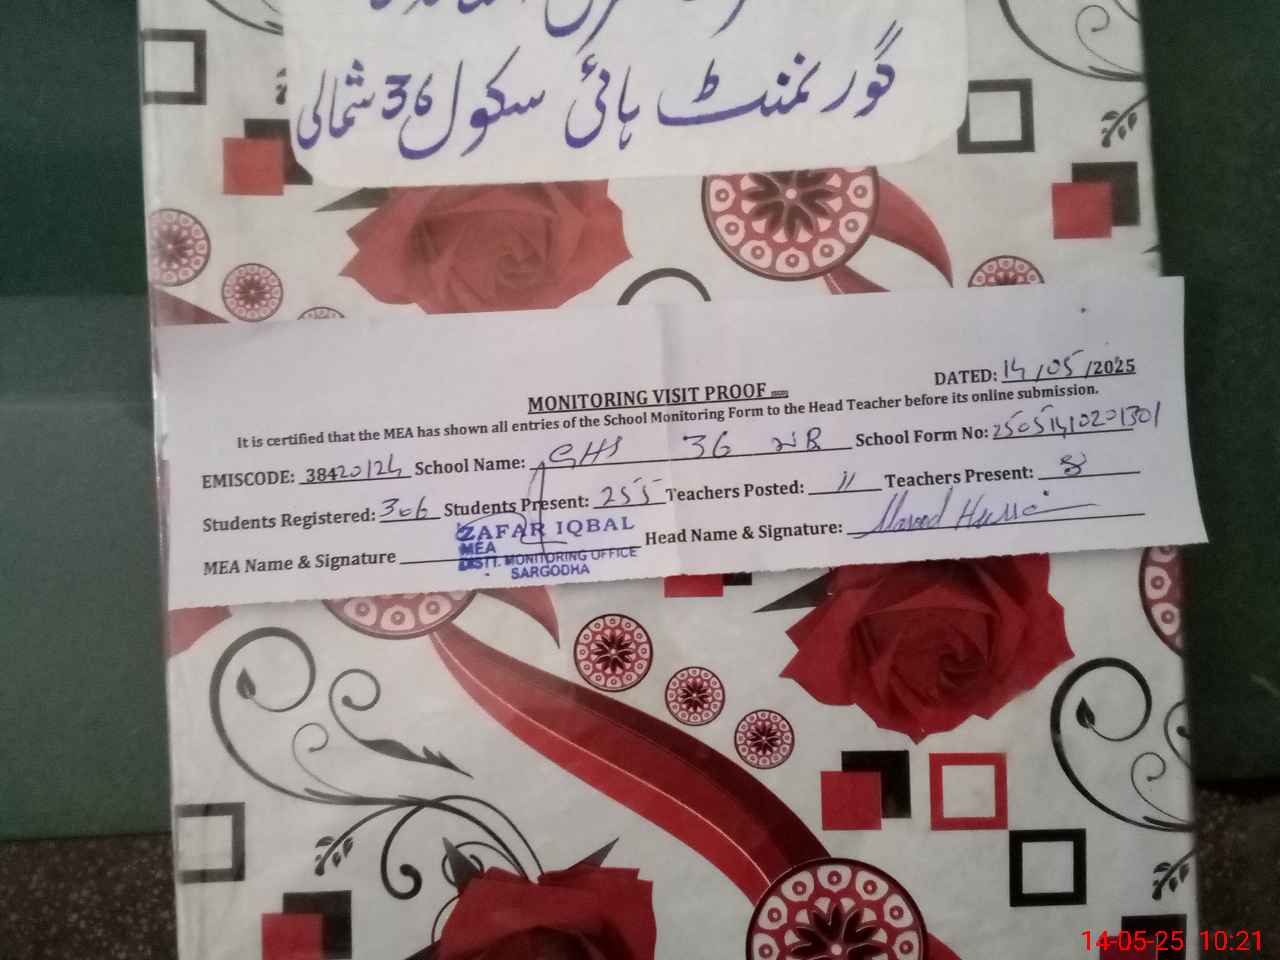 گورنمنٹ ہائی سکول 36 شمالی
DATED: 14/05/2025
MONITORING VISIT PROOF
It is certified that the MEA has shown all entries of the School Monitoring Form to the Head Teacher before its online submission.
EMISCODE: 38420124 School Name: GHS 36 NB School Form No: 25051410201301
Students Registered: 306 Students Present: 255 Teachers Posted: 11 Teachers Present: 8
MEA Name & Signature Head Name & Signature:
ZAFAR IQBAL
MEA
DISTT. MONITORING OFFICE
SARGODHA
14-05-25 10:21